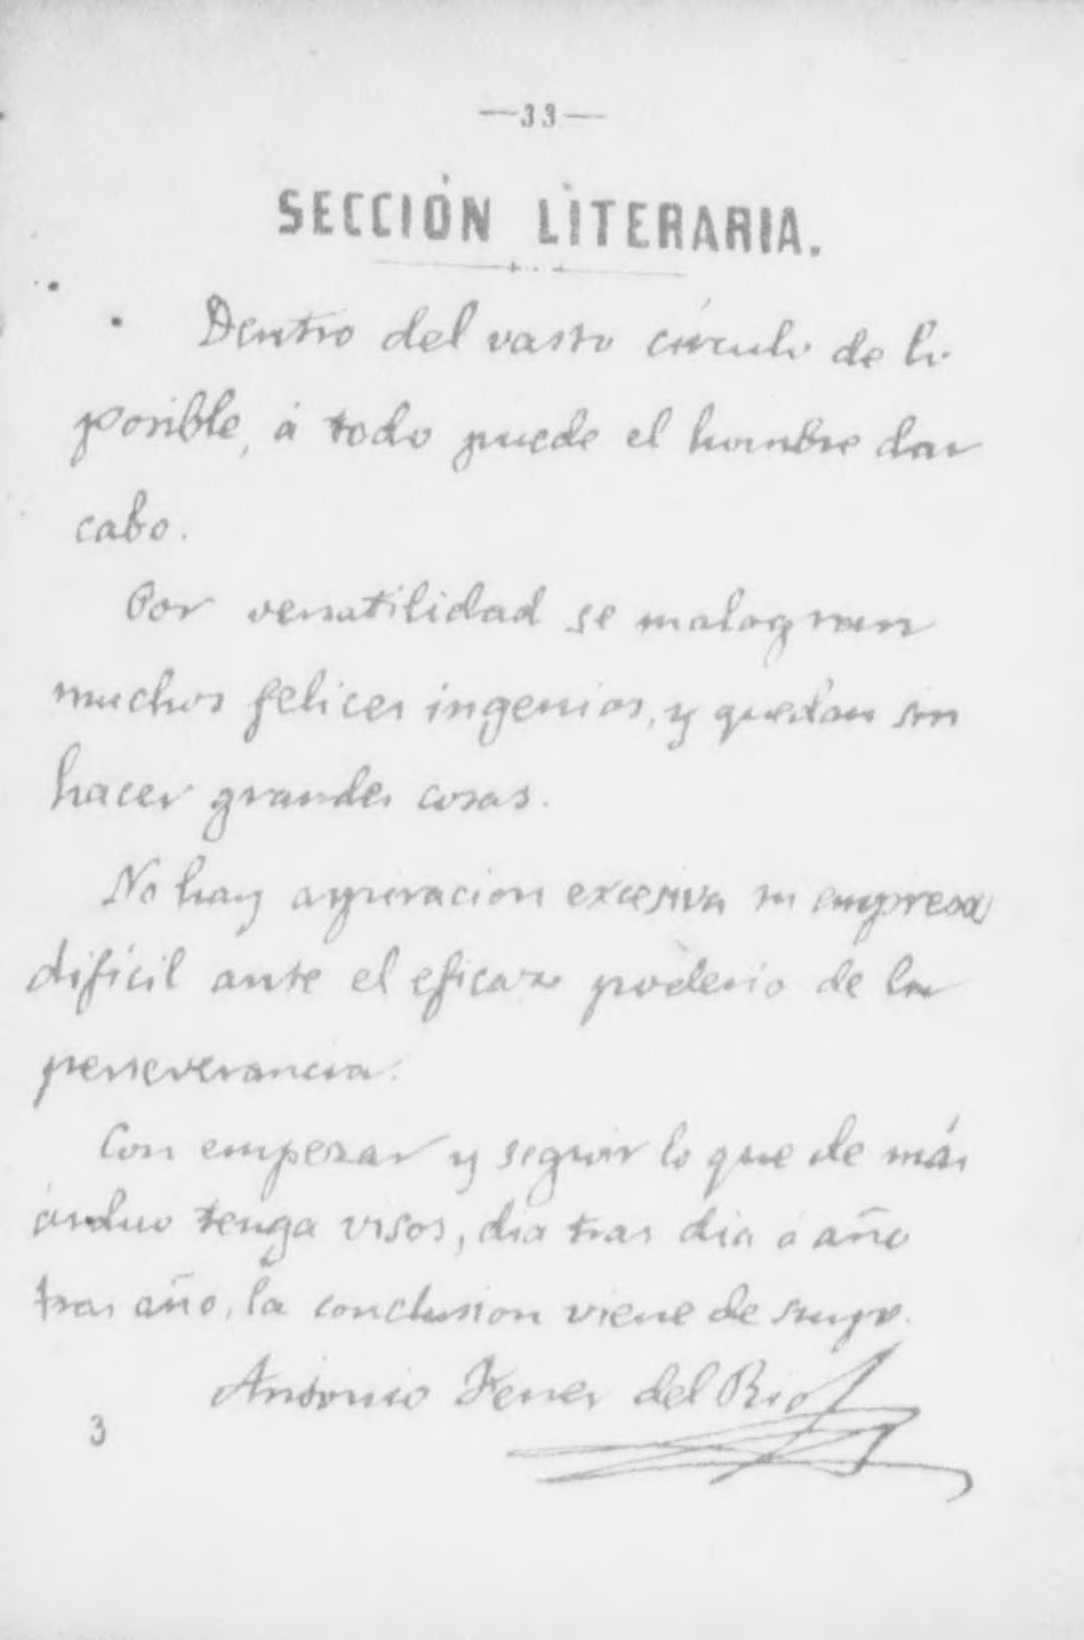 —33—
SECCIÓN LITERARIA.
Dentro del vasto círculo de lo
posible, á todo puede el hombre dar
cabo.
Por versatilidad se malogran
muchos felices ingenios, y quedan sin
hacer grandes cosas.
No hay aspiracion excesiva ni empresa
difícil ante el eficaz poderio de la
perseverancia.
Con empezar y seguir lo que de más
árduo tenga visos, dia tras dia ó año
tras año, la conclusion viene de suyo.
Antonio Ferrer del Rio
3